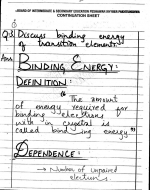 BOARD OF INTERMEDIATE & SECONDARY EDUCATION
CONTINUATION SHEET
Q:3 Discuss binding energy
of transition elements.
Ans:
BINDING ENERGY:
DEFINITION:
"The amount
of energy required for
bonding electrons
with in crystal is
called binding energy"
DEPENDENCE:
→ Number of unpaired
electrons